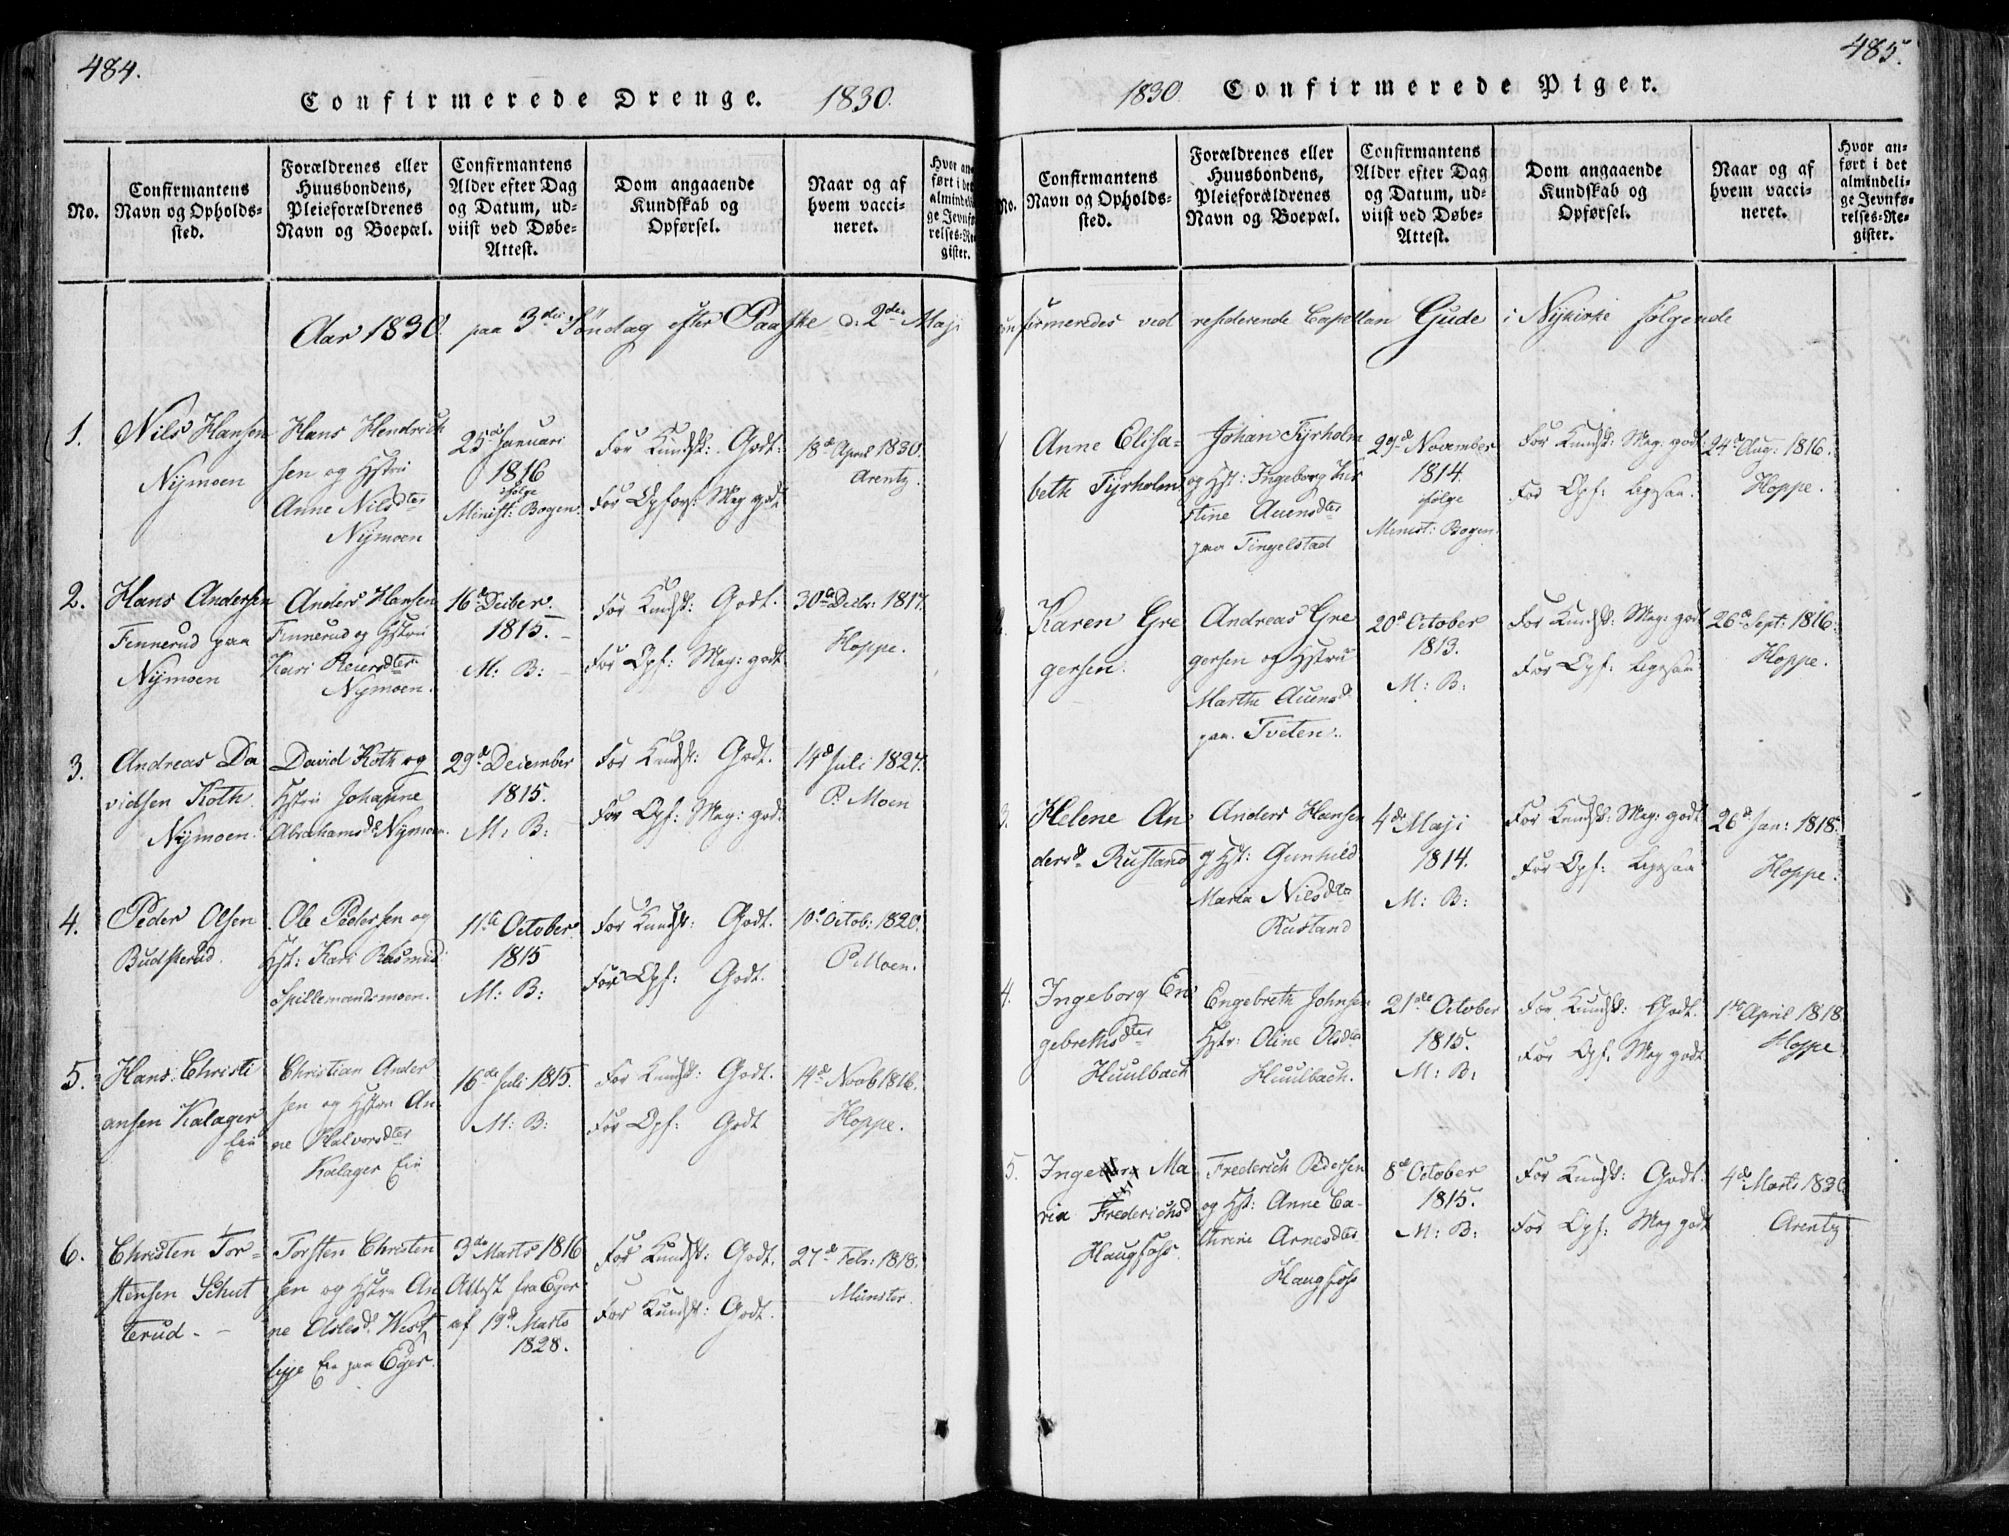 484.
Confirmerede Drenge. 1830.
No.
Confirmantens Navn og Opholds=
sted.
Forældrenes eller
Huusbondens,
Pleieforældrenes
Navn og Boepæl.
Confirmantens
Alder efter Dag
og Datum, ud=
viist ved Døbe=
Attest.
Dom angaaende
Kundskab og
Opførsel.
Naar og af
hvem vacci=
neret.
Hvor an=
ført i det
almindeli=
ge Jevnfø=
relses=Re=
gister.
Aar 1830. paa 3die Söndag efter Paaske d. 2den Maji
1.
Nils Hansen
Nijmoen
Hans Hendrich
sen og Hstru
Anne Nilsdter
Nijmoen
25de Januari
1816
ifølge
Minist: Bogen.
For Kundsk: Godt.
For Opførs: Meg godt
18de April 1830.
Arentz.
2.
Hans Andersen
Finnerud paa
Nijmoen
Anders Hansen
Finnerud og Hstru
Kari Reiersdter
Nijmoen.
16de Decber.
1815.
M: B:
For Kundsk: Godt.
For Opf: Meg: godt
30de Decbr: 1817.
Hoppe.
3.
Andreas Da
vidsen Koth.
Nijmoen.
David Koth og
Hstru Johanne
Abrahamsdr Nijmoen.
29de December
1815.
M: B:
For Kundsk: Godt.
For Opf: Meg: godt
14de Juli 1827.
P. Moen
4.
Peder Olsen
Budsterud.
Ole Pedersen og
Hst: Kari Rasmusd
Spillemandsmoen.
11te October
1815
M: B:
For Kundsk: Godt.
For Opf: Godt.
10de Octob: 1820.
P. Moen.
5.
Hans Christi
ansen Kalager
Eie
Christian Ander
sen og Hstru An
ne Halvorsdter
Kalager Eie
16de Juli 1815.
M: B:
For Kundsk: Godt.
For Opf: Godt
14de Novb 1816.
Hoppe.
6.
Christen Tor=
stensen Schut
terud. -
Torsten Christen
sen og Hstru An
ne Olslesd. West
bye Eie paa Eger.
3de Marts 1816
Attest fra Eger
af 19de Marts
1828.
For Kundsk: Godt.
For Kundsk: Godt.
27de Febr: 1818.
Münster.
485.
1830. Confirmerede Piger.
No.
Confirmantens
Navn og Opholds=
sted.
Forældrenes eller
Huusbondens,
Pleieforældrenes
Navn og Boepæl.
Confirmantens
Alder efter Dag
og Datum, ud=
viist ved Døbe=
Attest.
Dom angaaende
Kundskab og
Opførsel.
Naar og af
hvem vacci=
neret.
Hvor an=
ført i det
almindeli=
ge Jevnfø=
relses=Re=
gister.
confirmeredes ved residerende Capellan Gude i Nijkirke følgende
1
Anne Elisa=
beth Tyrholm
Johan Tyrholm
og Hst: Ingeborg Kir
stine Auensdter
paa Tingelstad
29de November
1814.
ifølge
Minist: Bogen.
For Kundsk: Meg: godt
For Opf: Ligesaa.
24de Aug: 1816.
Hoppe.
2.
Karen Gre
gersen.
Andreas Gre
gersen og Hstru
Marthe Auensd
paa Tveten.
20de October
1813.
M: B:
For Kundsk: Meg: godt
For Opf: Ligesaa
26de Sept: 1816.
Hoppe.
3.
Helene An
dersd. Rustand
Anders Hansen
og Hst: Gunhild
Maria Nilsdter
Rustand
4de Maji
1814.
M: B:
For Kundsk: Meg: godt
For Opf: Ligesaa
26de Jan: 1818.
Hoppe.
4.
Ingeborg En
gebrethsdter
Huulbach
Engebreth Johnsen
Hstr: Oline Olsdter
Huulbach.
21de October
1815.
M: B:
For Kundsk: Godt.
For Opf: Meg godt
1ste April 1818
Hoppe
5.
Ingeborg Ma
ria Frederichsd
Haugfoss.
Frederich Pedersen
og Hst: Anne Ca-
threne Arnesdter
Haugfoss
8de October
1815.
M: B:
For Kundsk: Godt.
For Opf: Meg godt
4de Marts 1830.
Arentz